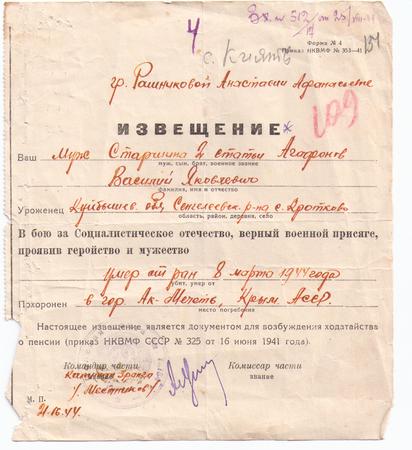 4
Вх. № 512/
Форма № 4
Приказ НКВМФ № 353—41
154
с. Киять
гр. Рашниковой Анастасии Афанасьевне
109
ИЗВЕЩЕНИЕ
Ваш Муж Старшина 2 статьи Агафонов
муж, сын, брат, военное звание
Василий Яковлевич
фамилия, имя и отчество
Уроженец Куйбышев. обл р-на с.
область, район, деревня, село
В бою за Социалистическое отечество, верный военной присяге,
проявив геройство и мужество
умер от ран 8 марта 1944 года
убит, умер от
Похоронен в гор Ак-Мечеть, Крым. Асср.
место погребения
Настоящее извещение является документом для возбуждения ходатайства
о пенсии (приказ НКВМФ СССР № 325 от 16 июня 1941 года).
Командир части Комиссар части
звание
М. П.